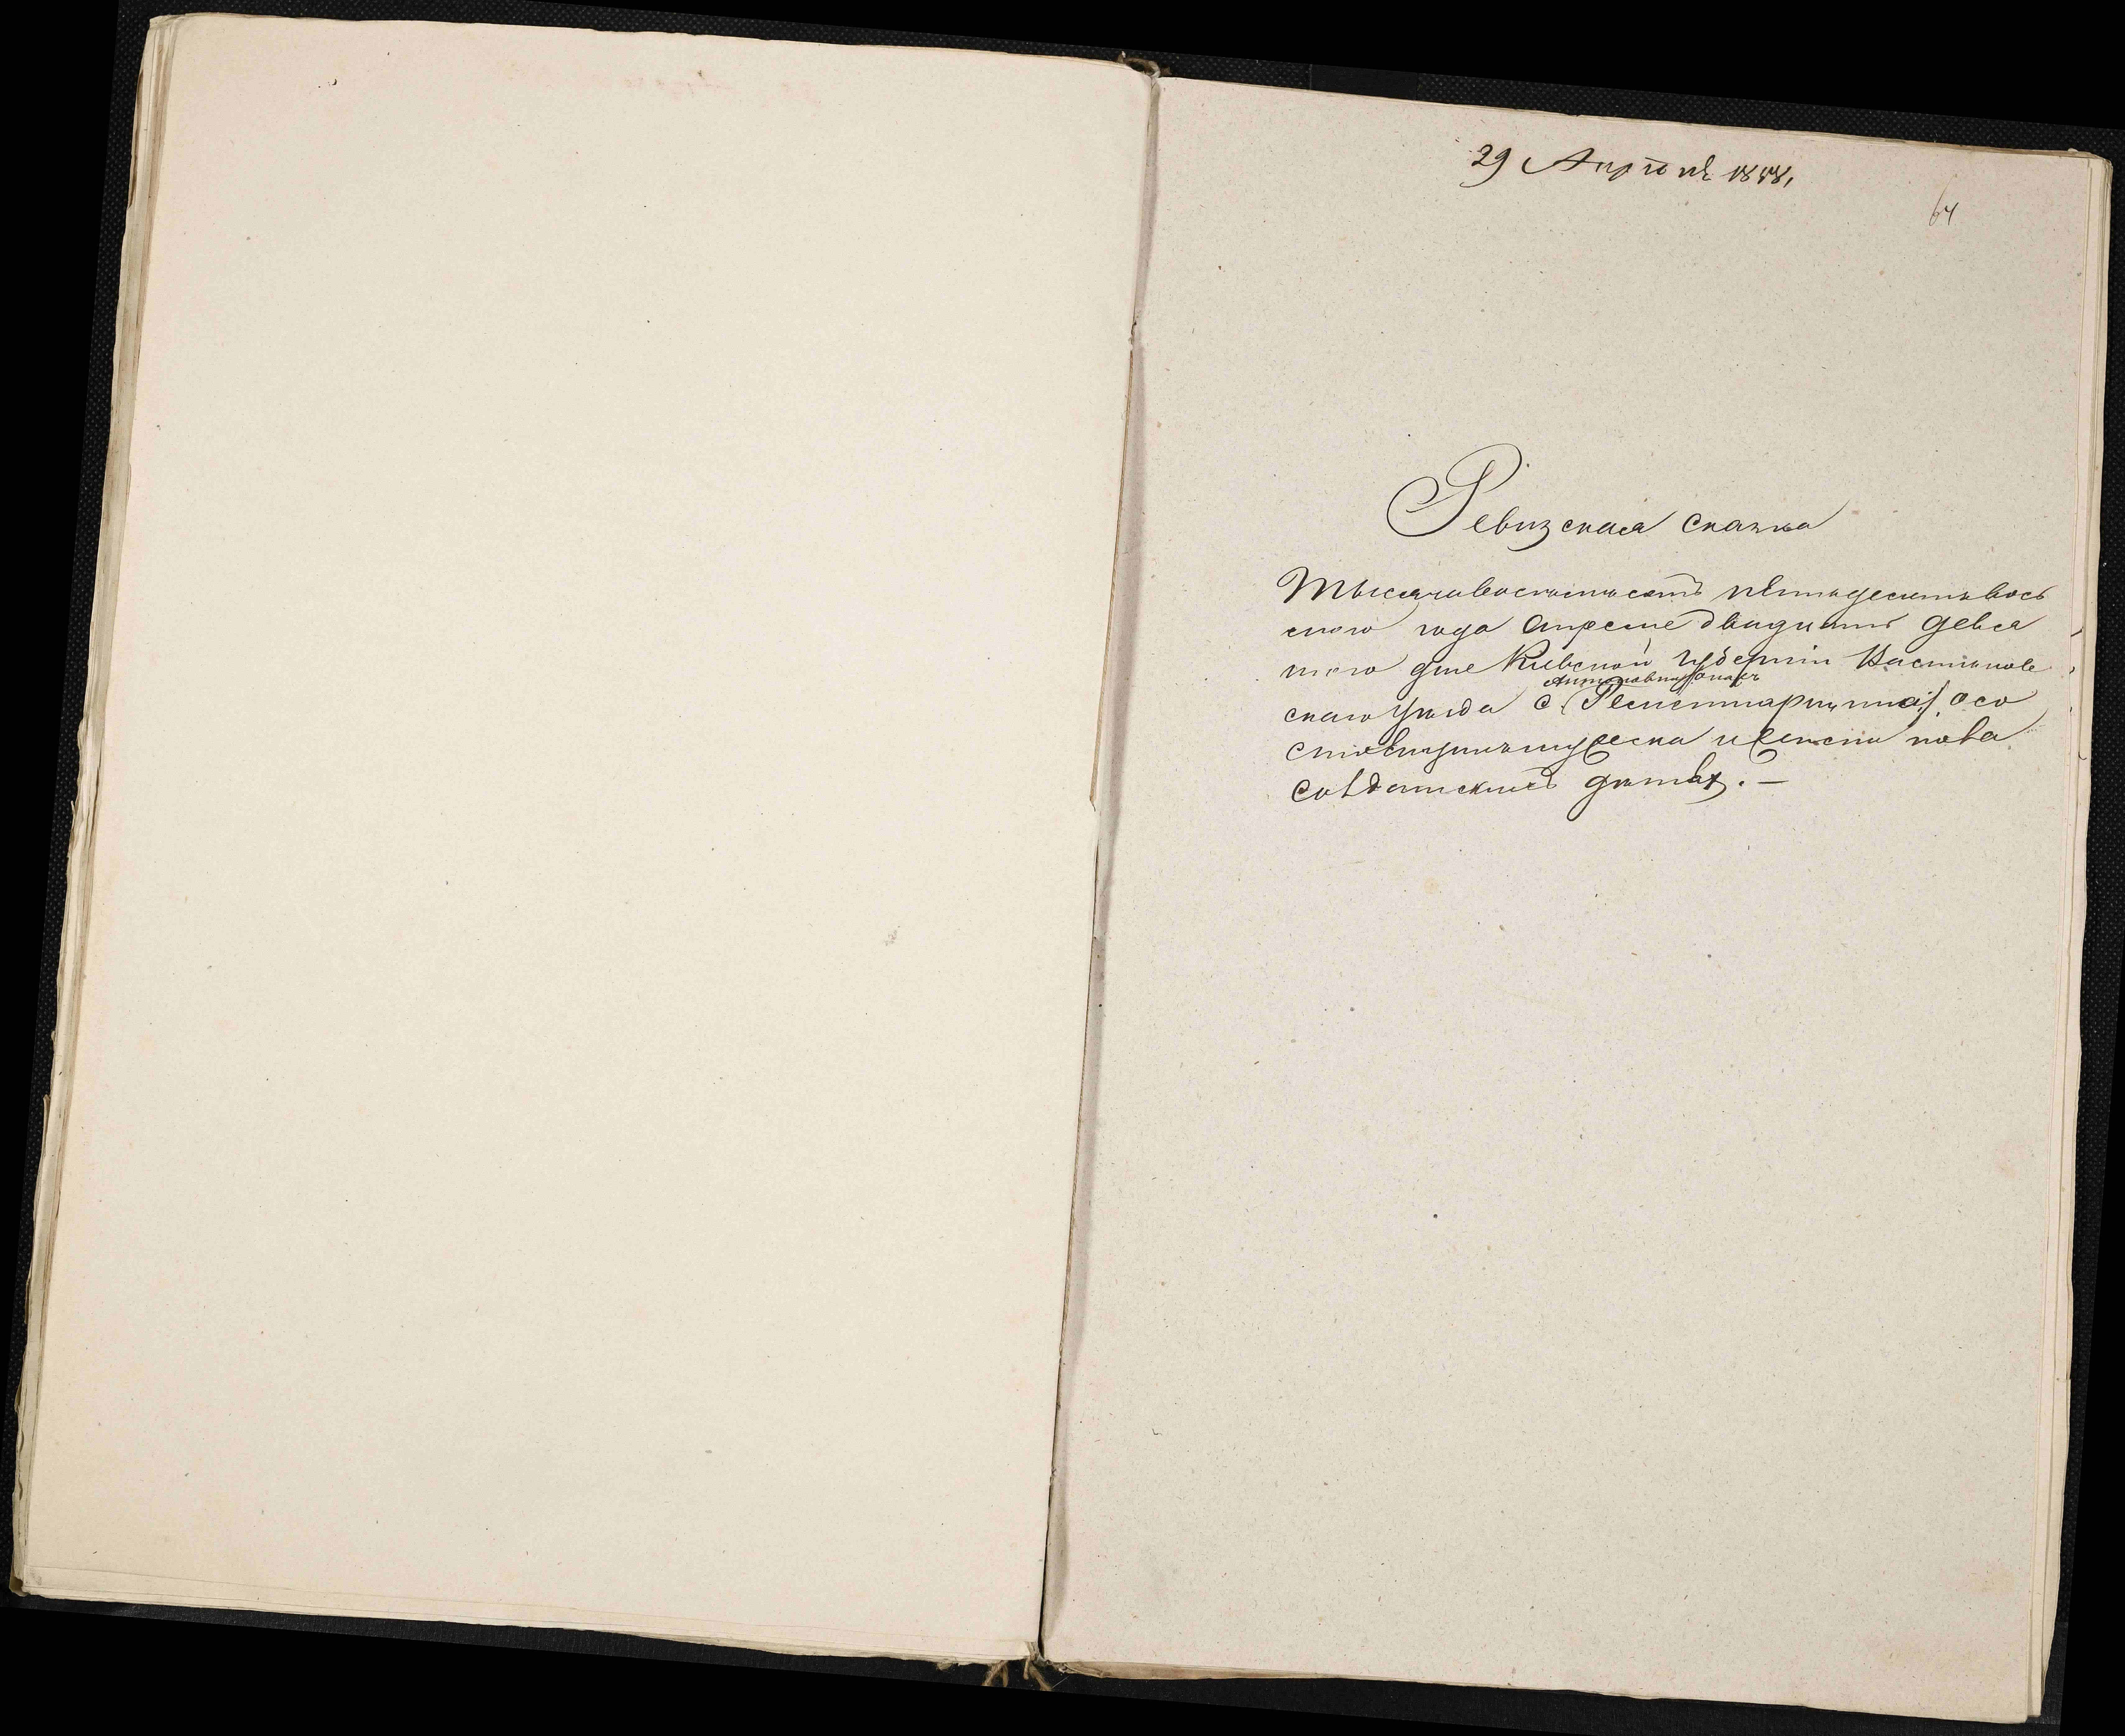 29 Апрѣля 1858,
64
Ревизская сказка
Тысяча восемьсотъ пятьдесятъ вось
мого года апреля двадцать девя
того дня Киевской губерніи Васильков
скаго уезда с. о со
мужеска и женска пола
солдатскихъ детяхъ. —